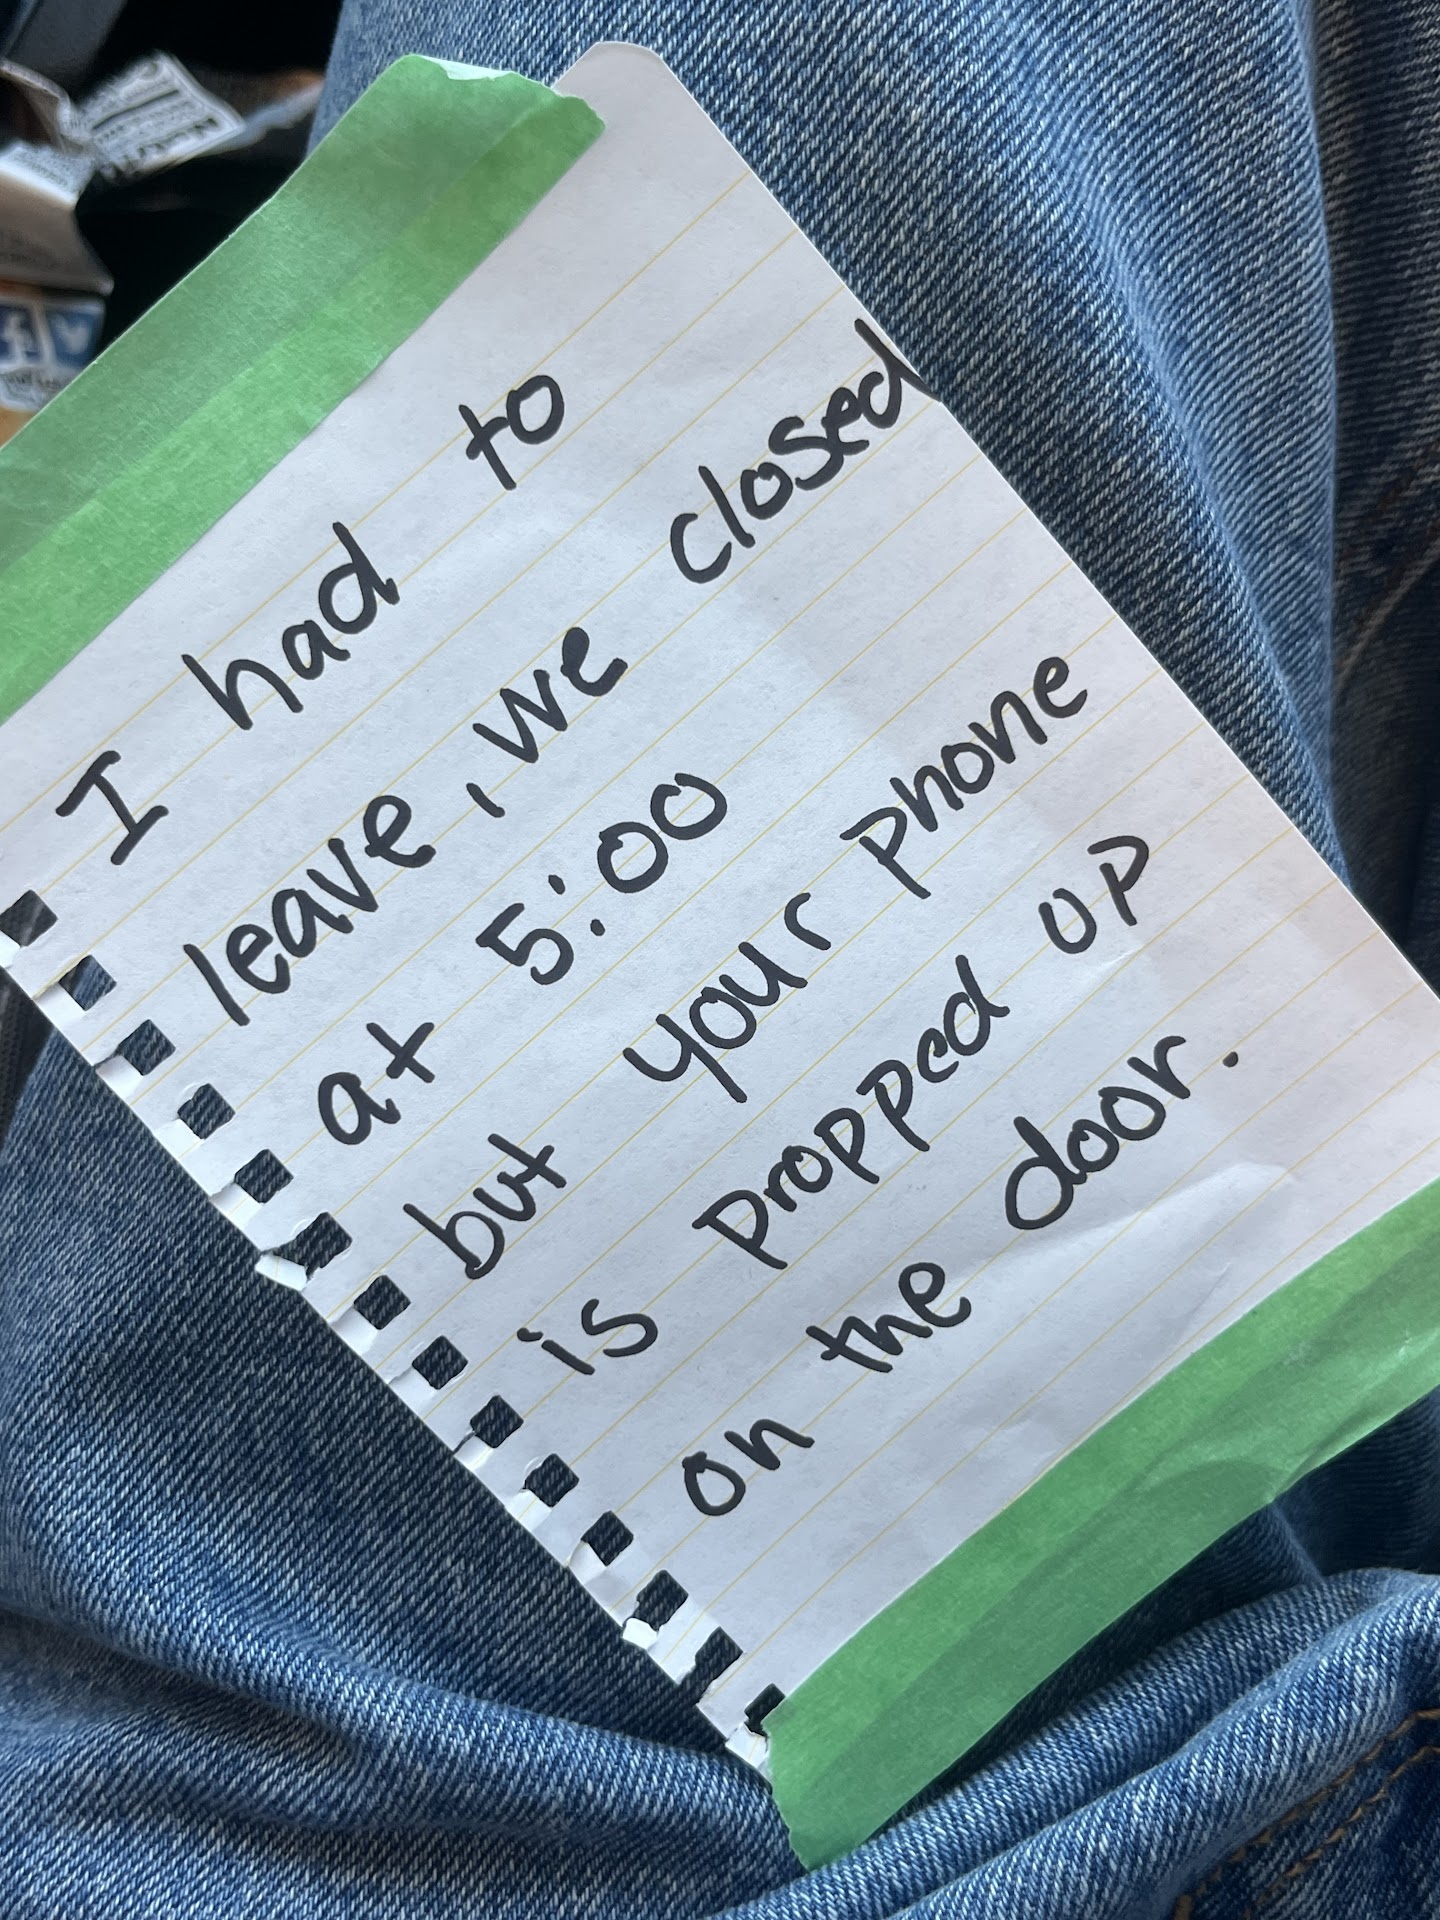 I had to
leave, we closed
at 5:00
but your phone
is propped up
on the door.
f